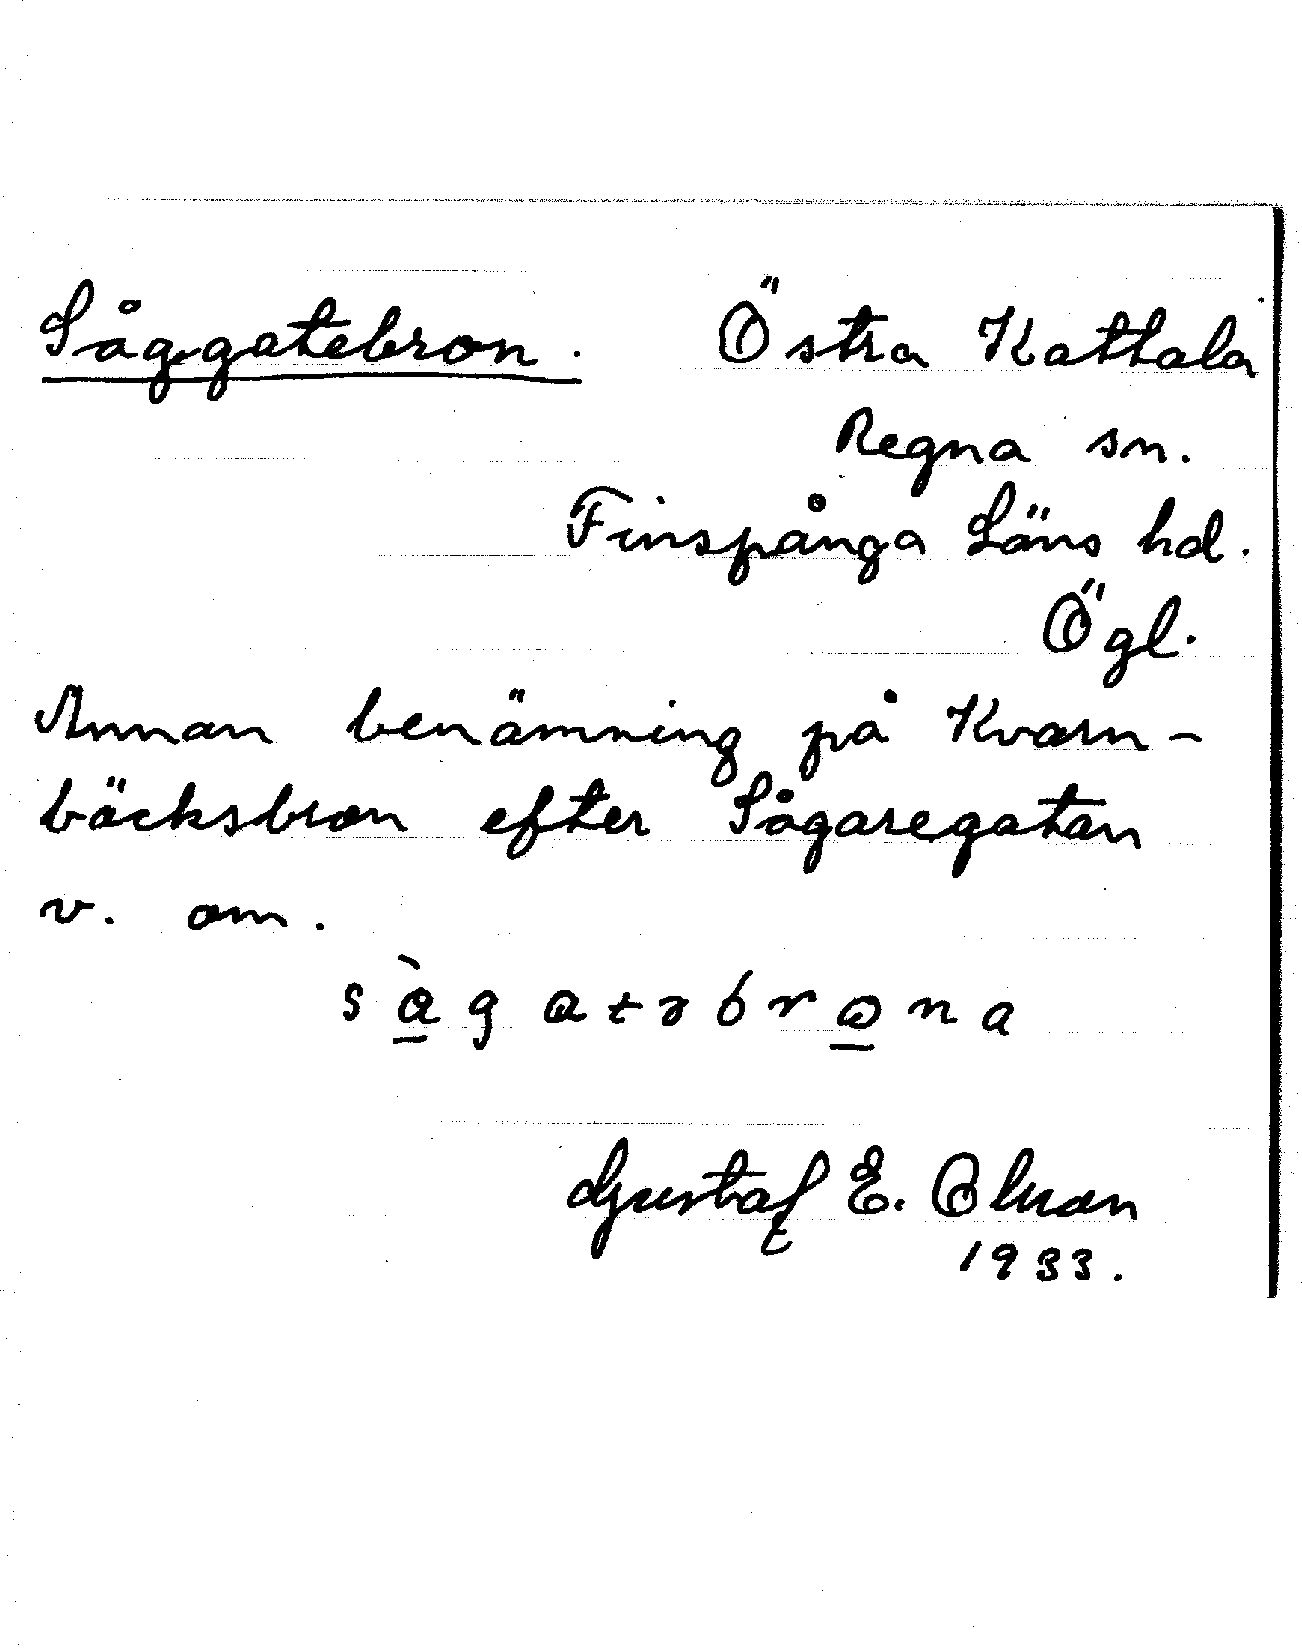 Såggatebron. Östra Kattala
Regna sn.
Finspånga Läns hd.
Ögl.
Annan benämning på Kvarn-
bäcksbron efter Sågaregatan
v. om.
Gustaf E. Olsson
1933.